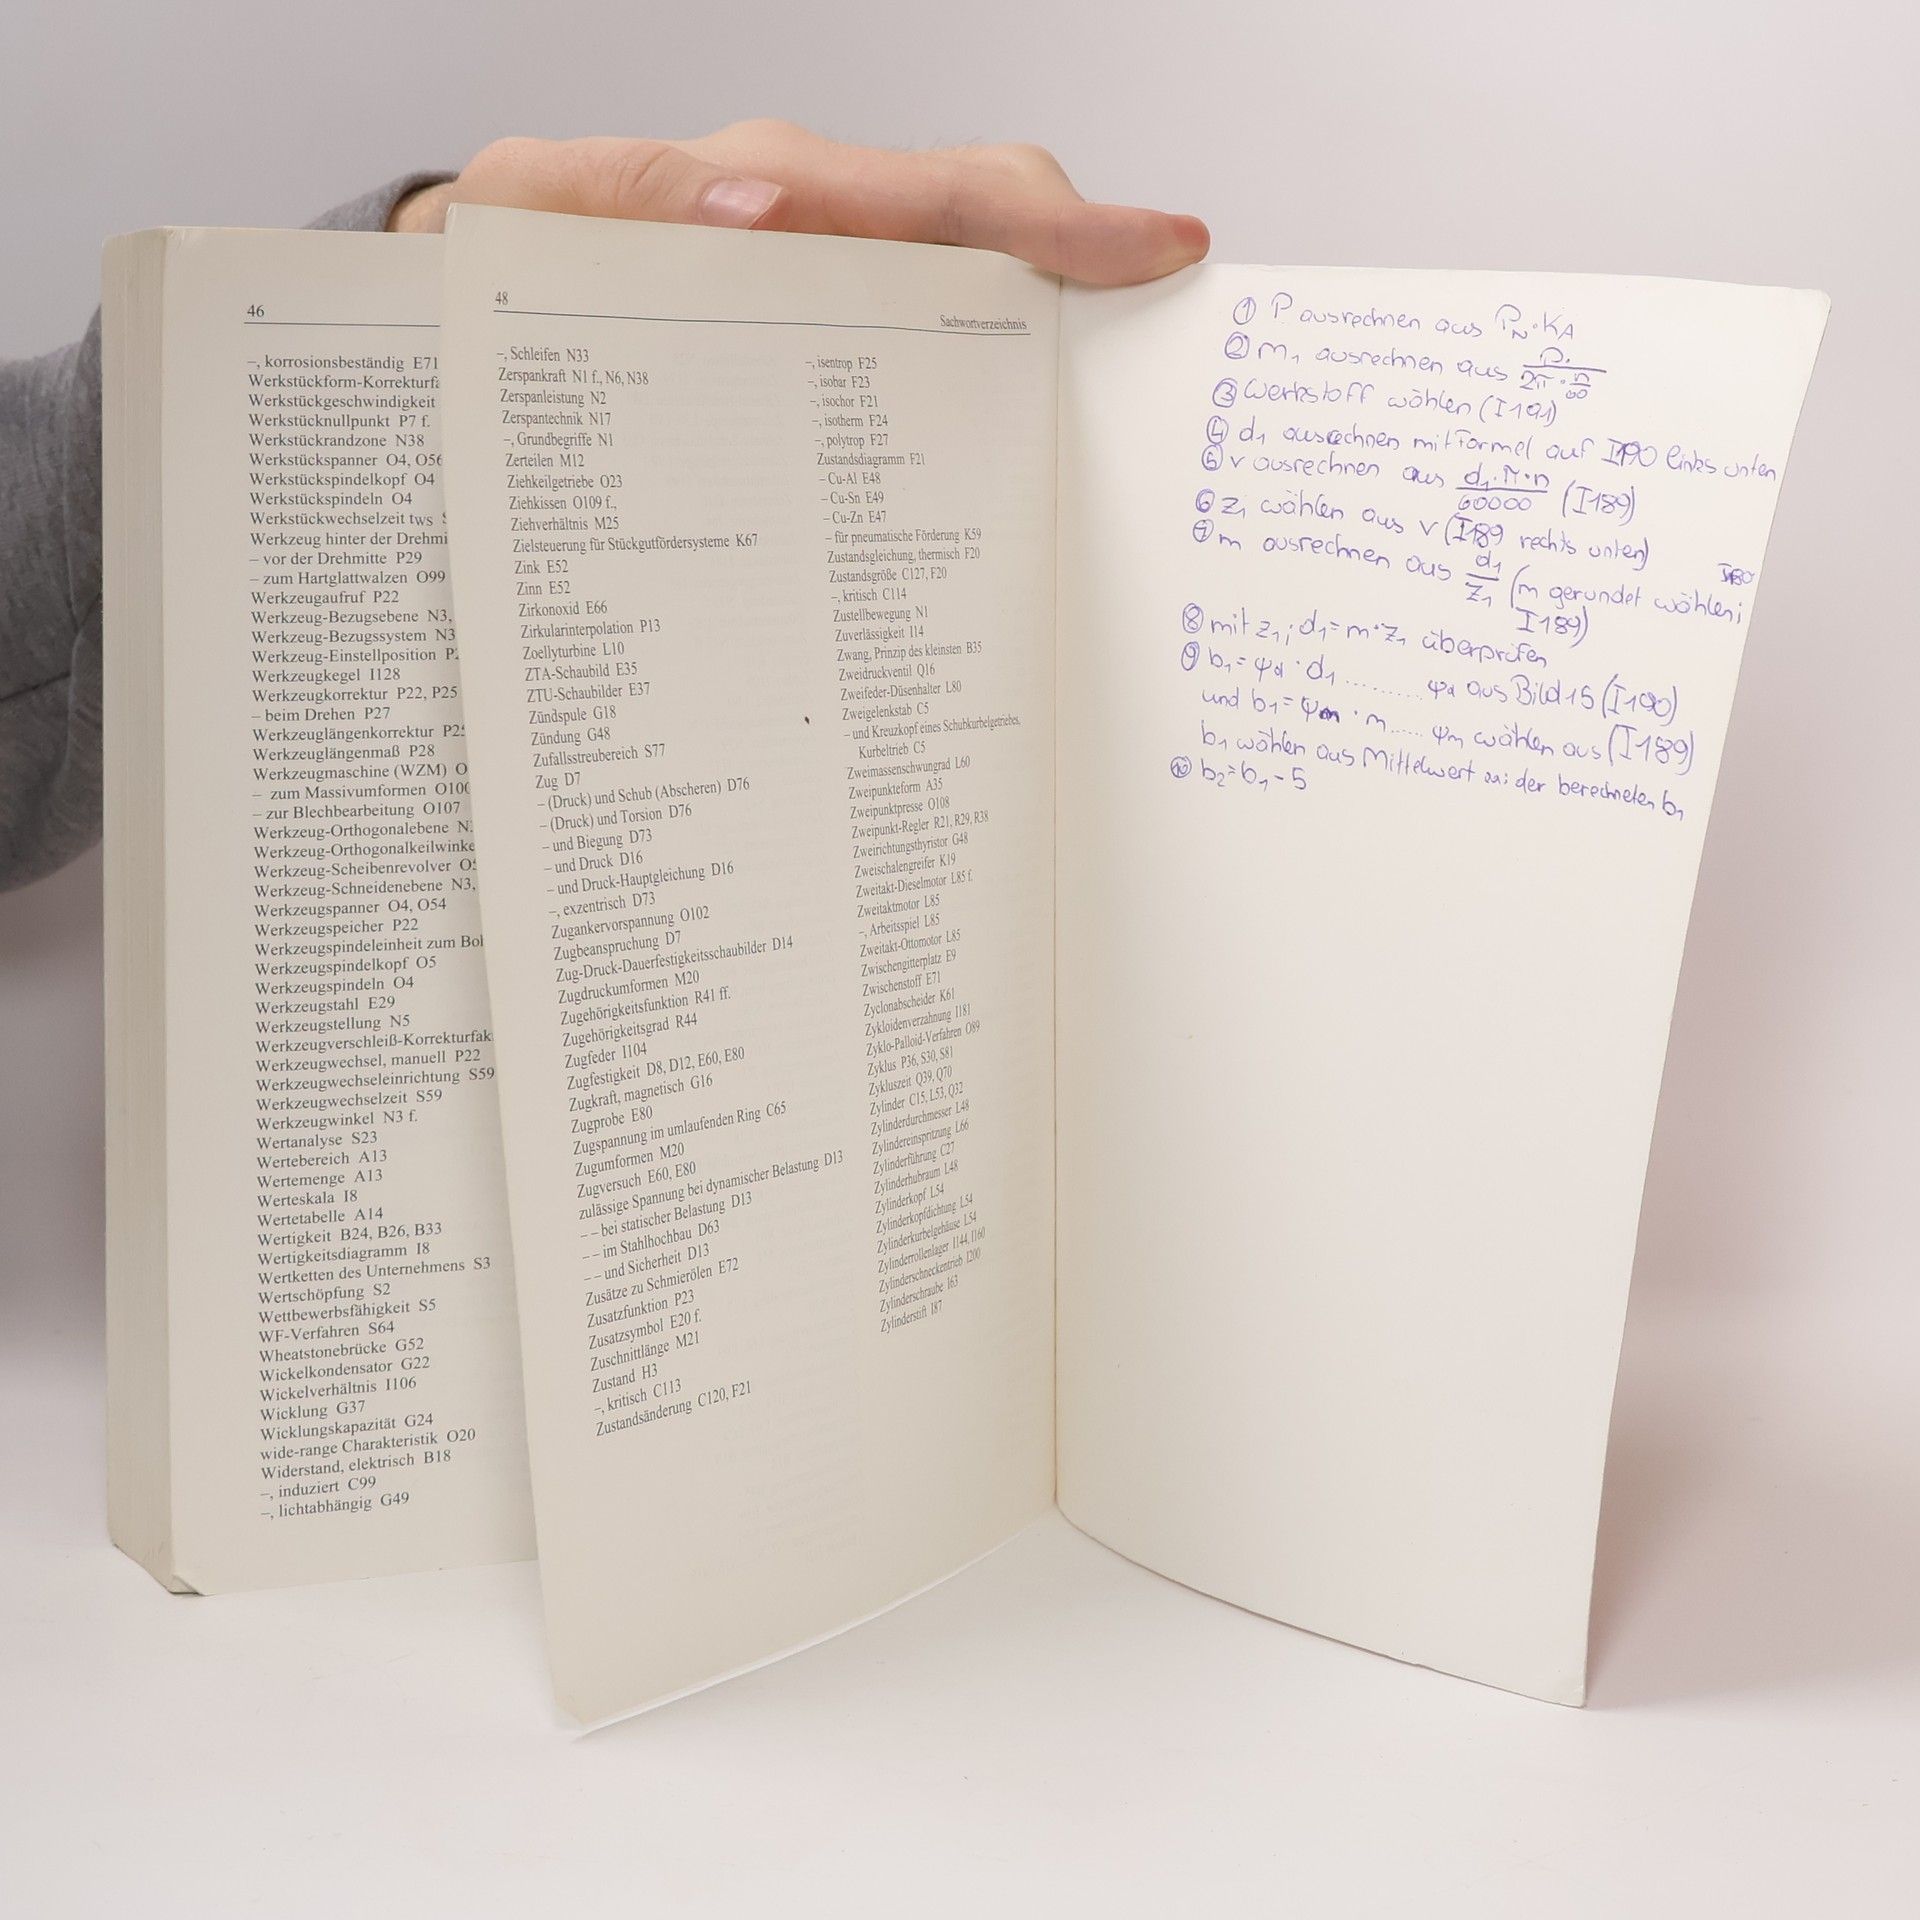 46
–, korrosionsbeständig E71
Werkstückform-Korrekturfa
Werkstückgeschwindigkeit
Werkstücknullpunkt P7 f.
Werkstückrandzone N38
Werkstückspanner O4, O56
Werkstückspindelkopf O4
Werkstückspindeln O4
Werkstückwechselzeit tws
Werkzeug hinter der Drehmi
– vor der Drehmitte P29
– zum Hartglattwalzen O99
Werkzeugaufruf P22
Werkzeug-Bezugsebene N3,
Werkzeug-Bezugssystem N3
Werkzeug-Einstellposition P2
Werkzeugkegel I128
Werkzeugkorrektur P22, P25
– beim Drehen P27
Werkzeuglängenkorrektur P25
Werkzeuglängenmaß P28
Werkzeugmaschine (WZM) O
– zum Massivumformen O100
– zur Blechbearbeitung O107
Werkzeug-Orthogonalebene N
Werkzeug-Orthogonalkeilwinke
Werkzeug-Scheibenrevolver O5
Werkzeug-Schneidenebene N3,
Werkzeugspanner O4, O54
Werkzeugspeicher P22
Werkzeugspindeleinheit zum Bo
Werkzeugspindelkopf O5
Werkzeugspindeln O4
Werkzeugstahl E29
Werkzeugstellung N5
Werkzeugverschleiß-Korrekturfak
Werkzeugwechsel, manuell P22
Werkzeugwechseleinrichtung S59
Werkzeugwechselzeit S59
Werkzeugwinkel N3 f.
Wertanalyse S23
Wertebereich A13
Wertemenge A13
Werteskala I8
Wertetabelle A14
Wertigkeit B24, B26, B33
Wertigkeitsdiagramm I8
Wertketten des Unternehmens S3
Wertschöpfung S2
Wettbewerbsfähigkeit S5
WF-Verfahren S64
Wheatstonebrücke G52
Wickelkondensator G22
Wickelverhältnis I106
Wicklung G37
Wicklungskapazität G24
wide-range Charakteristik O20
Widerstand, elektrisch B18
–, induziert C99
–, lichtabhängig G49
48
Sachwortverzeichnis
–, Schleifen N33
Zerspankraft N1 f., N6, N38
Zerspanleistung N2
Zerspantechnik N17
–, Grundbegriffe N1
Zerteilen M12
Ziehkeilgetriebe O23
Ziehkissen O109 f.,
Ziehverhältnis M25
Zielsteuerung für Stückgutfördersysteme K67
Zink E52
Zinn E52
Zirkonoxid E66
Zirkularinterpolation P13
Zoellyturbine L10
ZTA-Schaubild E35
ZTU-Schaubilder E37
Zündspule G18
Zündung G48
Zufallsstreubereich S77
Zug D7
– (Druck) und Schub (Abscheren) D76
– (Druck) und Torsion D76
– und Biegung D73
– und Druck D16
– und Druck-Hauptgleichung D16
–, exzentrisch D73
Zugankervorspannung O102
Zugbeanspruchung D7
Zug-Druck-Dauerfestigkeitsschaubilder D14
Zugdruckumformen M20
Zugehörigkeitsfunktion R41 ff.
Zugehörigkeitsgrad R44
Zugfeder I104
Zugfestigkeit D8, D12, E60, E80
Zugkraft, magnetisch G16
Zugprobe E80
Zugspannung im umlaufenden Ring C65
Zugumformen M20
Zugversuch E60, E80
zulässige Spannung bei dynamischer Belastung D13
– – bei statischer Belastung D13
– – im Stahlhochbau D63
– – und Sicherheit D13
Zusätze zu Schmierölen E72
Zusatzfunktion P23
Zusatzsymbol E20 f.
Zuschnittlänge M21
Zustand H3
–, kritisch C113
Zustandsänderung C120, F21
–, isentrop F25
–, isobar F23
–, isochor F21
–, isotherm F24
–, polytrop F27
Zustandsdiagramm F21
– Cu-Al E48
– Cu-Sn E49
– Cu-Zn E47
– für pneumatische Förderung K59
Zustandsgleichung, thermisch F20
Zustandsgröße C127, F20
–, kritisch C114
Zustellbewegung N1
Zuverlässigkeit I14
Zwang, Prinzip des kleinsten B35
Zweidruckventil Q16
Zweifeder-Düsenhalter L80
Zweigelenkstab C5
– und Kreuzkopf eines Schubkurbelgetriebes,
Kurbeltrieb C5
Zweimassenschwungrad L60
Zweipunkteform A35
Zweipunktpresse O108
Zweipunkt-Regler R21, R29, R38
Zweirichtungsthyristor G48
Zweischalengreifer K19
Zweitakt-Dieselmotor L85 f.
Zweitaktmotor L85
–, Arbeitsspiel L85
Zweitakt-Ottomotor L85
Zwischengitterplatz E9
Zwischenstoff E71
Zyclonabscheider K61
Zykloidenverzahnung I181
Zyklo-Palloid-Verfahren O89
Zyklus P36, S30, S81
Zykluszeit Q39, Q70
Zylinder C15, L53, Q32
Zylinderdurchmesser L48
Zylindereinspritzung L66
Zylinderführung C27
Zylinderhubraum L48
Zylinderkopf L54
Zylinderkopfdichtung L54
Zylinderkurbelgehäuse L54
Zylinderrollenlager I144, I160
Zylinderschneckentrieb I200
Zylinderschraube I63
Zylinderstift I87
① P ausrechnen aus P_N·K_A
② m₁ ausrechnen aus P·/(2π·n/60)
③ Werkstoff wählen (I191)
④ d₁ ausrechnen mit Formel auf I190 links unten
⑤ v ausrechnen aus d₁·π·n/60000 (I189)
⑥ z₁ wählen aus v (I189 rechts unten)
⑦ m ausrechnen aus d₁/z₁ (m gerundet wählen;
I189)
⑧ mit z₁; d₁=m·z₁ überprüfen
⑨ b₁=ψd·d₁ .......... ψd aus Bild 15 (I190)
und b₁=ψm·m...... ψm wählen aus (I189)
b₁ wählen aus Mittelwert der berechneten b₁
⑩ b₂=b₁-5